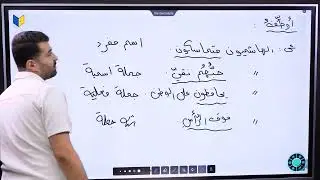 أوظّف :
نحن الهاشميون متماسكون. اسم مفرد
" حبّهم نقيّ . جملة اسمية
" يحافظون على الوطن. جملة فعلية
" فوق الرأس . شبه جملة